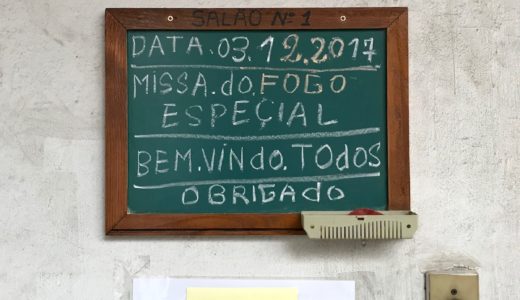 SALÃO Nº 1
DATA.03.12.2017
MISSA.do.FOGO
ESPEÇIAL
BEM.VINdo.TOdoS
OBRIGADO